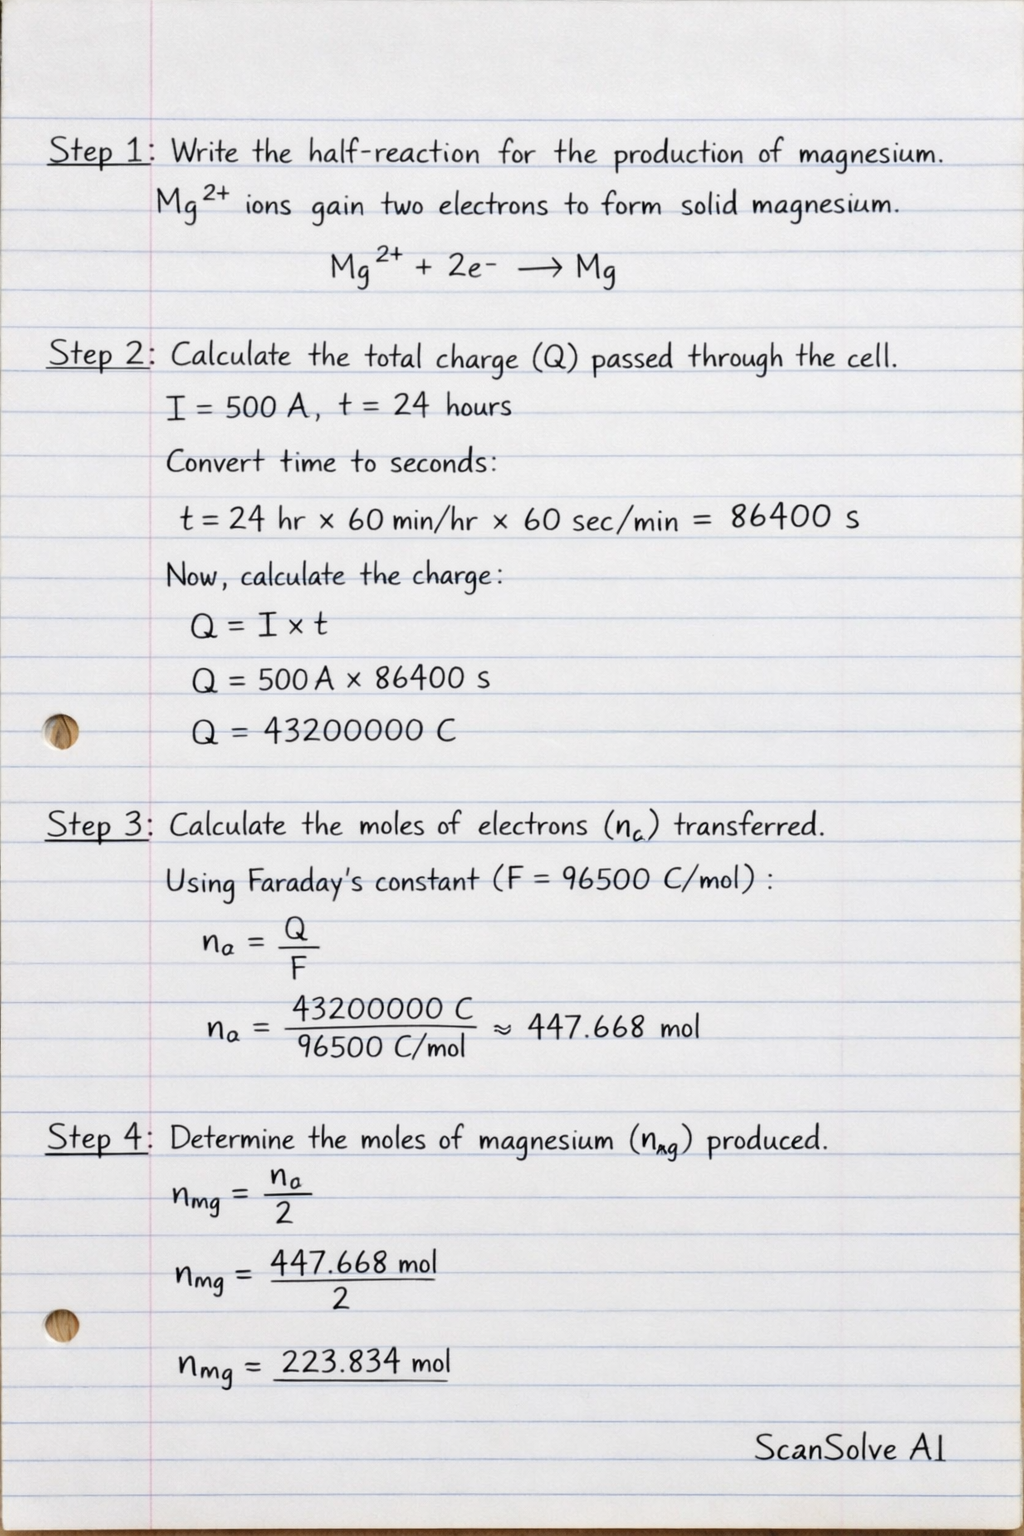 Step 1: Write the half-reaction for the production of magnesium.
Mg²⁺ ions gain two electrons to form solid magnesium.
Mg²⁺ + 2e⁻ ⟶ Mg
Step 2: Calculate the total charge (Q) passed through the cell.
I = 500 A, t = 24 hours
Convert time to seconds:
t = 24 hr × 60 min/hr × 60 sec/min = 86400 s
Now, calculate the charge:
Q = I × t
Q = 500 A × 86400 s
Q = 43200000 C
Step 3: Calculate the moles of electrons (nₐ) transferred.
Using Faraday's constant (F = 96500 C/mol) :
nₐ = Q
F
nₐ = 43200000 C ≈ 447.668 mol
96500 C/mol
Step 4: Determine the moles of magnesium (n_mg) produced.
n_mg = nₐ
2
n_mg = 447.668 mol
2
n_mg = 223.834 mol
ScanSolve AI